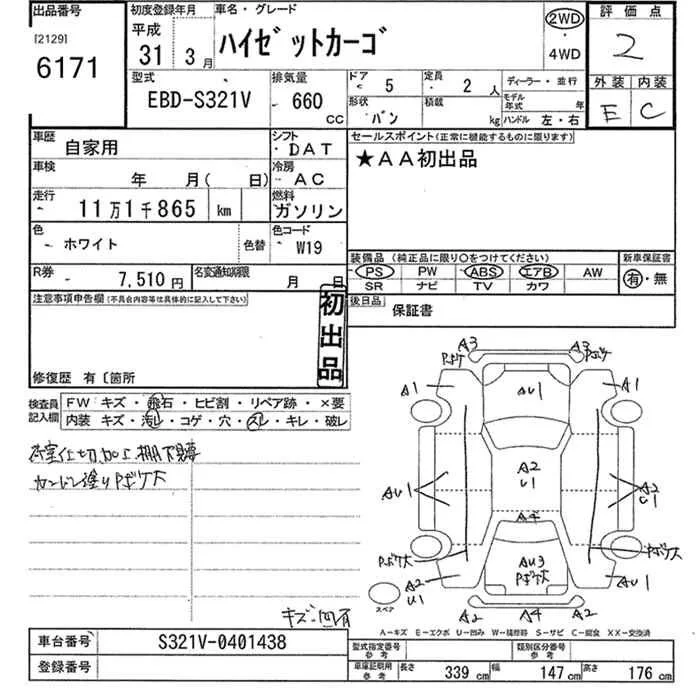 出品番号
[2129]
6171
初度登録年月
平成
31 3月
車名・グレード
ハイゼットカーゴ
2WD
・
4WD
評価点
2
外装 内装
E C
型式
EBD-S321V
排気量
660 CC
ドア 5
定員 2 人
形状 バン
積載 kg
ディーラー・並行
モデル年式 年
ハンドル 左・右
車歴 自家用
シフト DAT
車検 年 月( 日)
冷房 AC
走行 11万1千865 km
燃料 ガソリン
色 ホワイト 色替
色コード W19
R券 7,510円
名変通知期限 月 日
セールスポイント(正常に機能するものに限ります)
★AA初出品
装備品(純正品に限り○をつけてください)
PS PW ABS エアB AW
SR ナビ TV カワ
新車保証書
有・無
後日品 保証書
注意事項申告欄(不具合内容等は具体的に記入して下さい)
初出品
修復歴 有〔箇所
検査員記入欄
FW キズ・飛石・ヒビ割・リペア跡・×要
内装 キズ・汚レ・コゲ・穴・スレ・キレ・破レ
キズ・凹有
A3 A3
Pボケ Pボケ
A1 AU1 A1
AU1 A2 U1 A2 U1
A4
Pボケ大 AU3 Pボケ大 Pボケ大
A2 U1 AU1
スペア
A2 A4 A2
A-キズ E-エクボ U-凹み W-補修跡 S-サビ C-腐食 XX-交換済
車台番号 S321V-0401438
登録番号
型式指定番号 参考
類別区分番号 参考
車庫証明用 参考
長さ 339 cm 幅 147 cm 高さ 176 cm